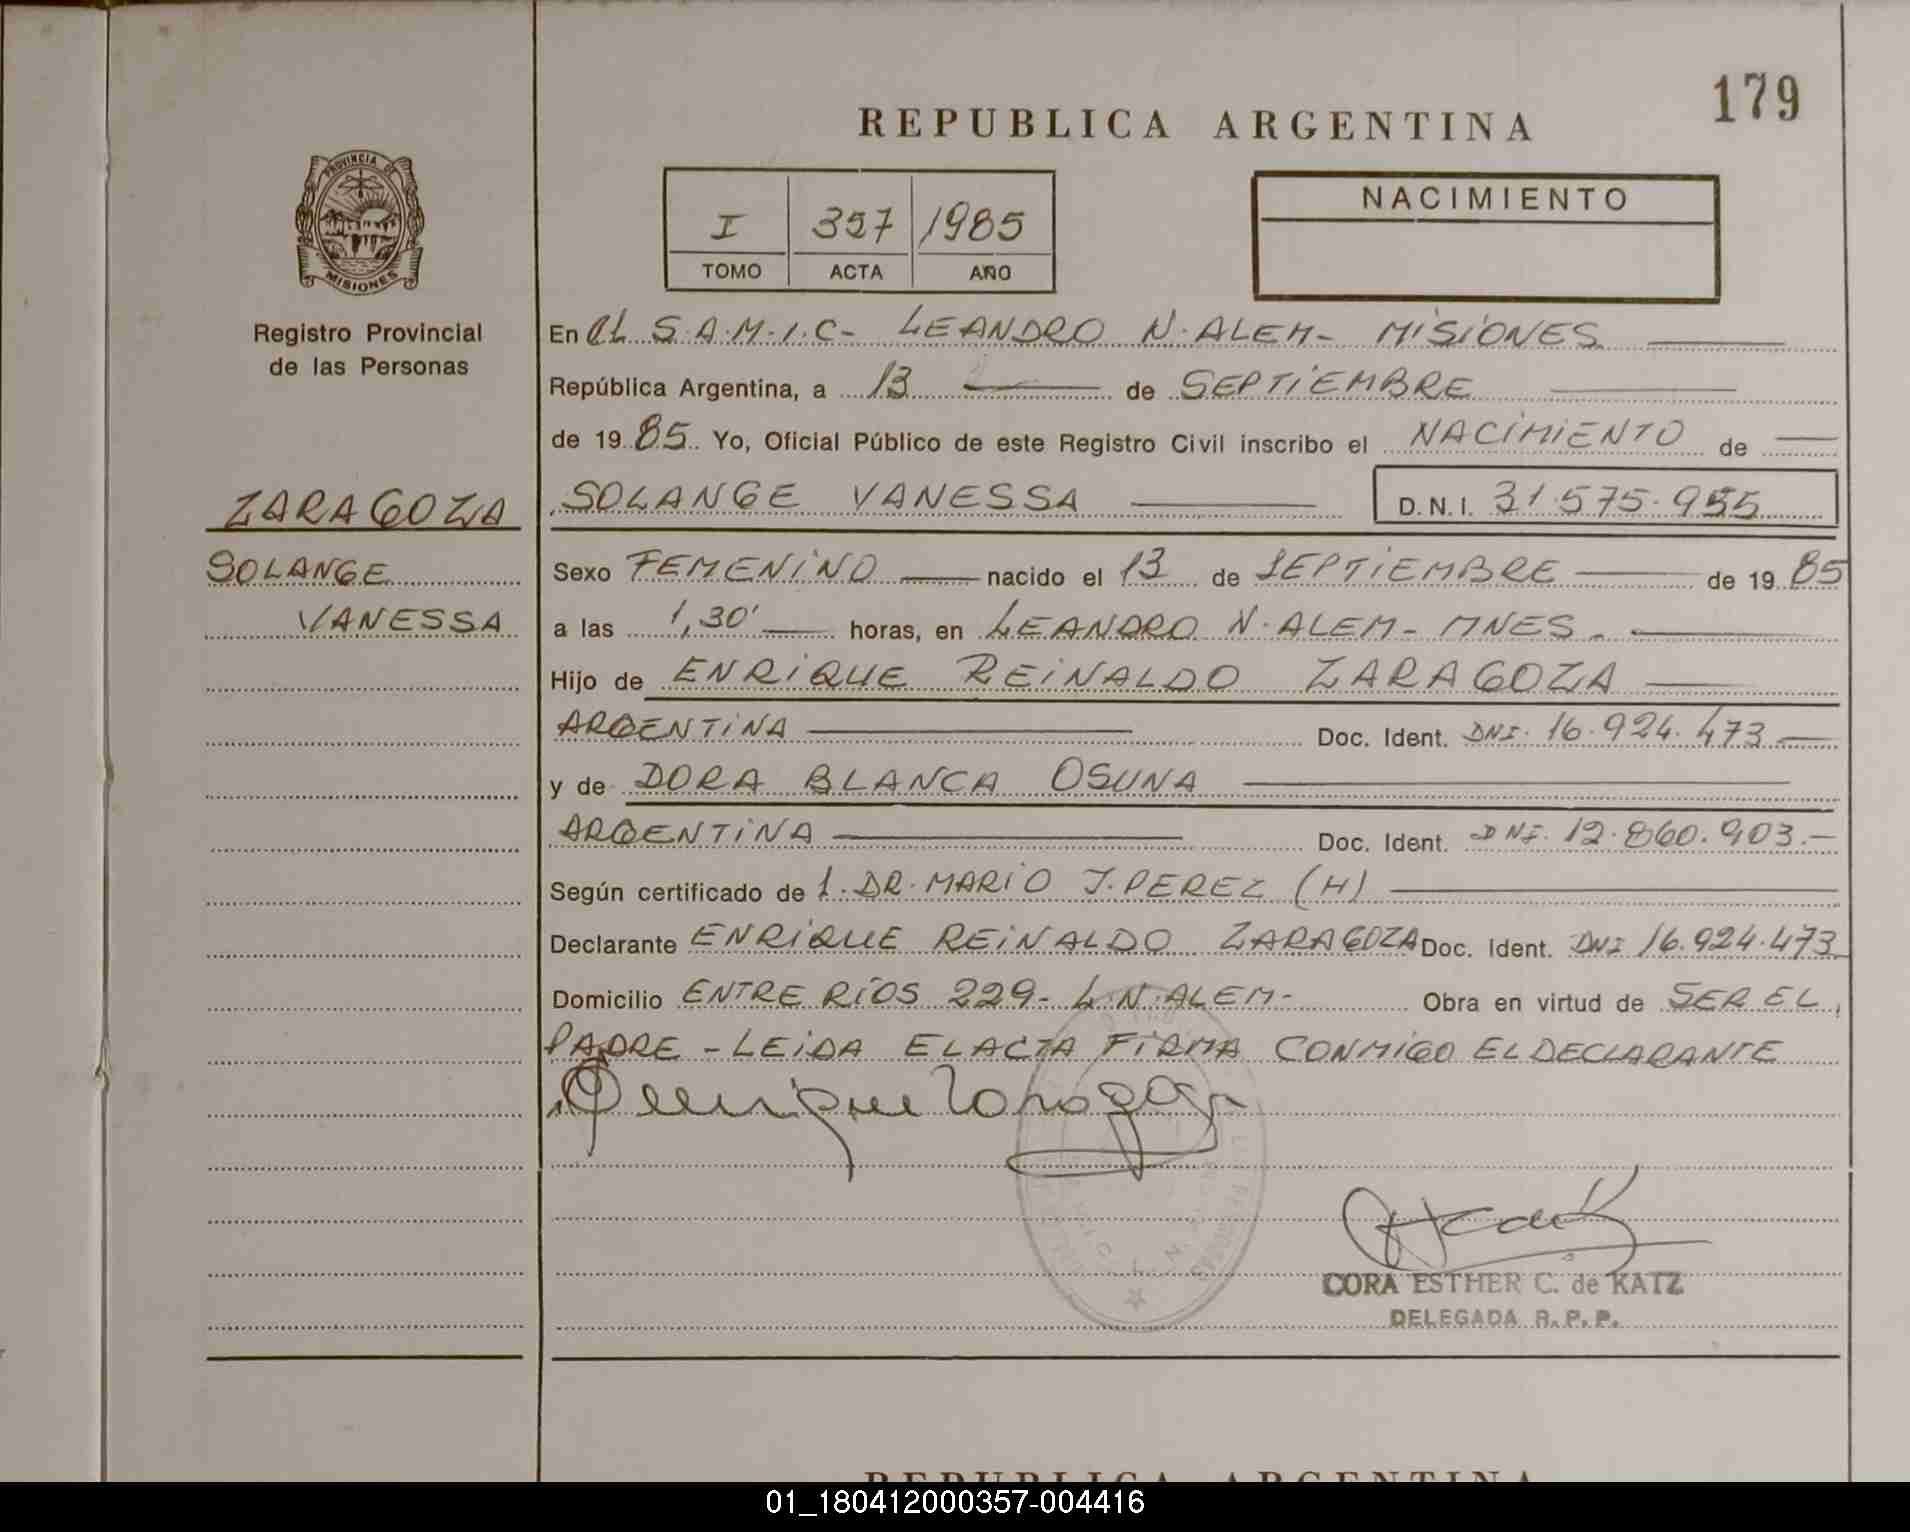 179
REPUBLICA ARGENTINA
PROVINCIA DE
MISIONES
I 357 1985
TOMO ACTA AÑO
NACIMIENTO
Registro Provincial
de las Personas
En EL S.A.M.I.C- LEANDRO N. ALEM- MISIONES
República Argentina, a 13 de SEPTIEMBRE
de 1985. Yo, Oficial Público de este Registro Civil inscribo el NACIMIENTO de
ZARAGOZA
SOLANGE VANESSA D.N.I. 31.575.955
SOLANGE
VANESSA
Sexo FEMENINO nacido el 13 de SEPTIEMBRE de 1985
a las 1,30' horas, en LEANDRO N. ALEM- MNES.
Hijo de ENRIQUE REINALDO ZARAGOZA
ARGENTINA Doc. Ident. DNI. 16.924.473
y de DORA BLANCA OSUNA
ARGENTINA Doc. Ident. DNI. 12.860.903.
Según certificado de 1. DR. MARIO J. PEREZ (H)
Declarante ENRIQUE REINALDO ZARAGOZA Doc. Ident. DNI 16.924.473
Domicilio ENTRE RIOS 229- L.N.ALEM- Obra en virtud de SER EL
PADRE - LEIDA EL ACTA FIRMA CONMIGO EL DECLARANTE
CORA ESTHER C. de KATZ
DELEGADA R.P.P.
REPUBLICA ARGENTINA
01_180412000357-004416